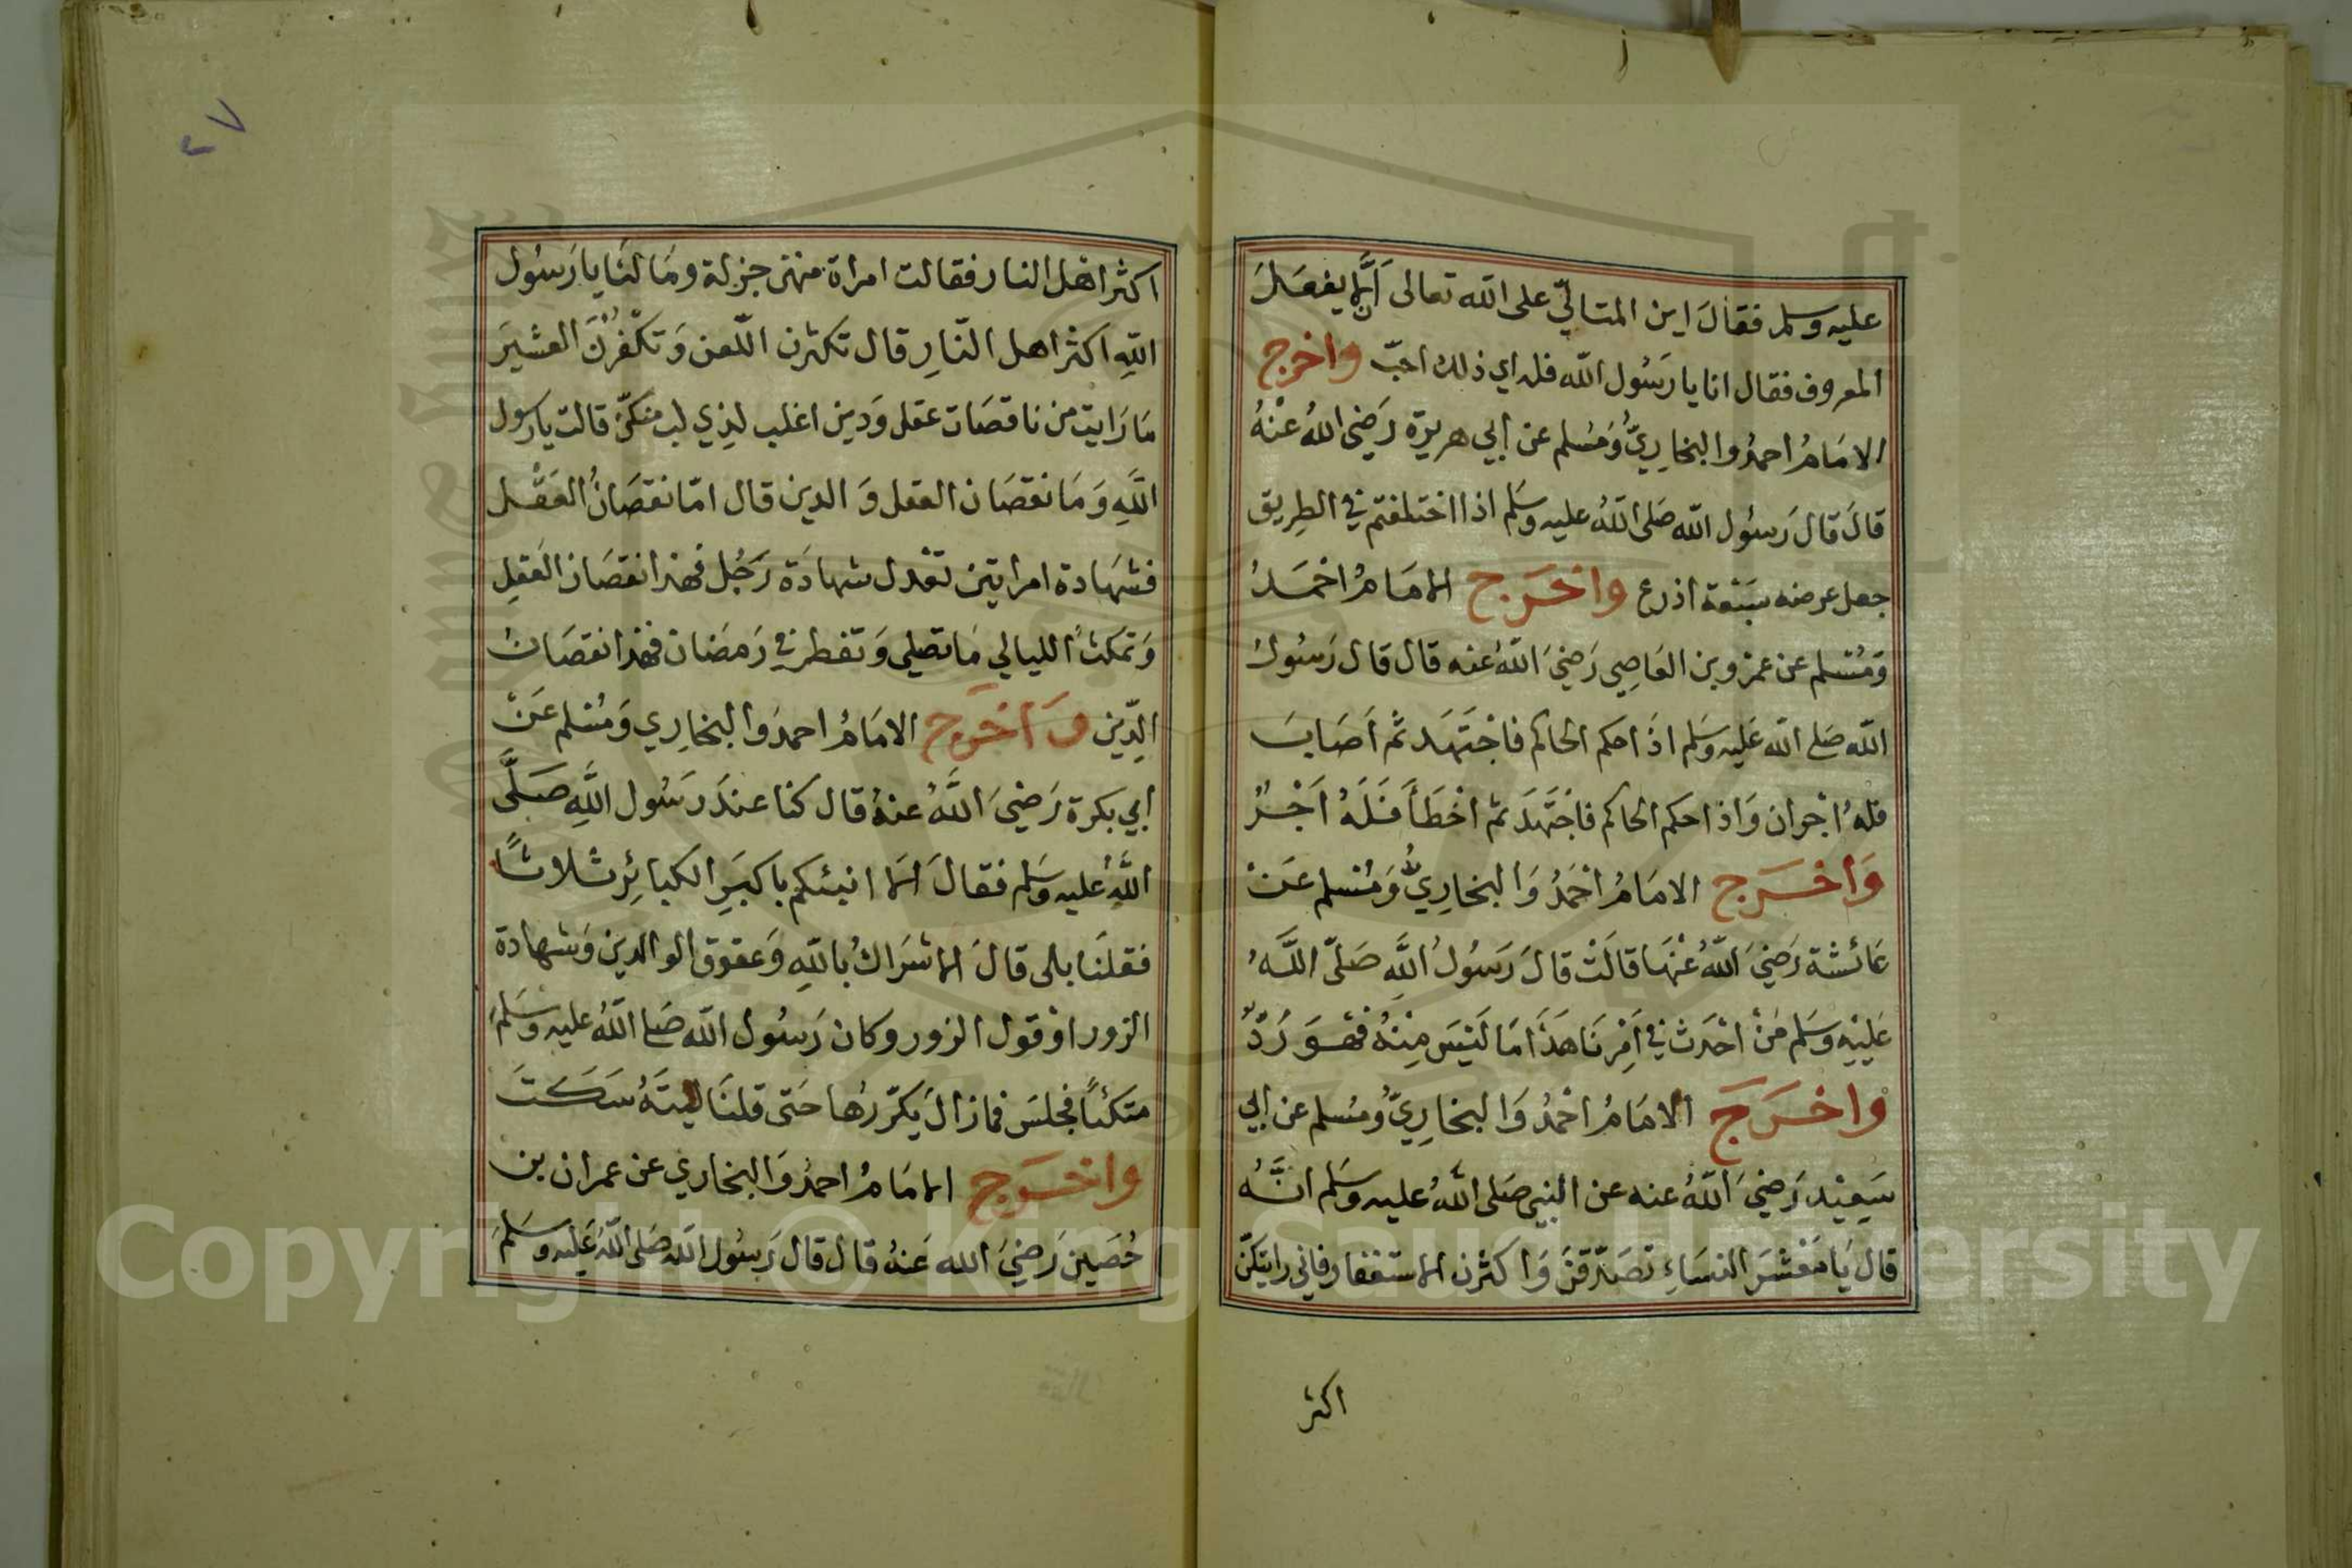 عليه وسلم فقال اين المتالّي على الله تعالى ان لا يفعل
المعروف فقال انا يا رَسُول الله فله اي ذلك احبّ واخرج
الامَامُ احمدُ والبخارِيُّ وَمُسلم عن ابي هريرة رَضِيَ اللهُ عنْهُ
قالَ قال رَسُول الله صَلى اللهُ عليه وسَلم اذا اختلفتم في الطرِيق
جعل عرضه سَبْعة اذرع واخرَج الامَامُ احْمَدُ
وَمُسْلم عن عمْرو بن العَاصِي رَضِيَ اللهُ عنه قال قال رَسُولُ
الله صَلى الله عَليه وسَلم اذَا حكم الحاكم فاجْتَهَد ثم اَصَابَ
فلهُ اجْران وَاذا حكم الحاكم فاجْتَهَدَ ثم اخْطَأَ فَلَهُ اَجْرٌ
وَاخْرَج الامَامُ احْمَدُ وَالبخارِيُّ وَمُسلم عَنْ
عَائشة رَضِيَ اللهُ عنْهَا قالَتْ قالَ رَسُولُ اللَّهِ صَلّى اللَّهُ
عَليْهِ وسَلم مَنْ احْدَث في اَمْرِنَا هَذَا مَا لَيْسَ مِنْهُ فَهْوَ رَدٌّ
وَاخْرَجَ الامَامُ احْمَدُ وَالبخارِيُّ وَمُسلم عن ابي
سَعِيْد رَضِيَ اللهُ عنه عن النبي صَلى اللهُ عليه وسَلم انَّهُ
قال يَا مَعْشَرَ النسَاءِ تصَدّقنَ وَاكثرْن الاستغفار فاني رايتكنّ
اكثر
٢٧
اكثر اهل النار فقالت امراة منهن جزلة ومَا لنَا يا رَسُول
اللهِ اكثر اهل النّارِ قال تكثرن اللّعن وَتكْفُرْنَ العشيَر
مَا رَايت من ناقصَات عقل وَدين اغلب لذِي لب منكنّ قالت يا رسول
اللَّهِ وَمَا نقصَان العقل وَالدين قال امّا نقصَانُ العَقْل
فشهَادة امراتين تعْدل شهادَة رَجُل فهذا نقصَان العَقلِ
وَتمكثُ الليالي مَا تصَلي وَتفطر في رَمضَان فهذا نقصَانُ
الدّين وَاخرَج الامَامُ احمدُ وَالبخارِي وَمُسْلم عَنْ
ابي بكرة رَضِيَ اللَّهُ عنهُ قال كنا عندَ رَسُول اللَّهِ صَلَّى
اللَّهُ عليه وسَلم فقالَ الا انبئكم باكبَرِ الكبائِرِ ثلاثًا
فقلنَا بلى قالَ الاشرَاكُ باللهِ وَعقوق الوالدين وَشهادة
الزور اوْ قول الزور وكان رَسُول الله صَلى اللهُ عليه وسَلم
متكئاً فجلسَ فما زالَ يكرّرُها حَتى قلنَا ليتَهُ سَكَتَ
وَاخرَج الامَامُ احمدُ وَالبخاري عن عمران بن
حُصَين رَضِيَ الله عَنهُ قال قال رَسُول الله صَلى اللهُ عَليه وسَلم
Copyright © King Saud University